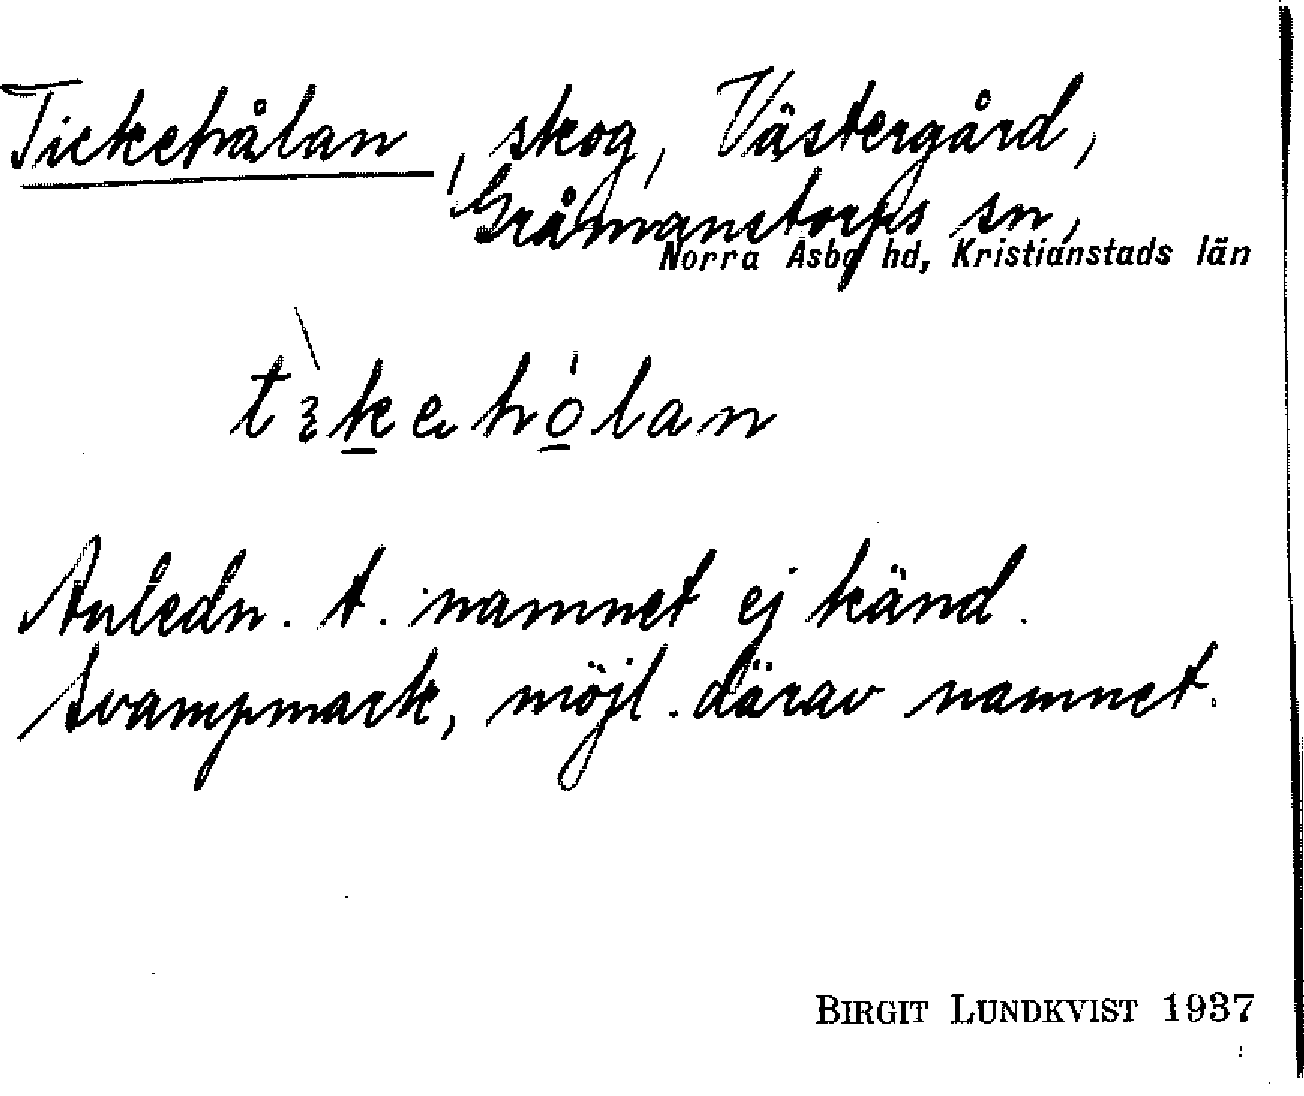 Tickehålan, skog, Västergård,
Gråmanstorps sn,
Norra Åsbo hd, Kristianstads län
Anledn. t. namnet ej känd.
Svampmark, möjl. därav namnet.
BIRGIT LUNDKVIST 1937